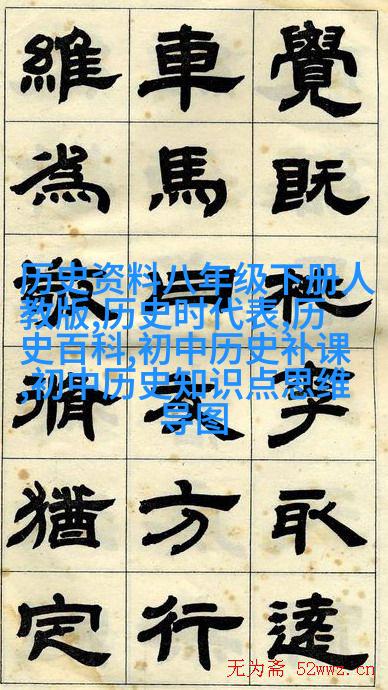 覺既取達
車馬方行
維為猶定
历史资料八年级下册人
教版,历史时代表,历
史百科,初中历史补课
,初中历史知识点思维
导图
无为斋 52wwz.cn